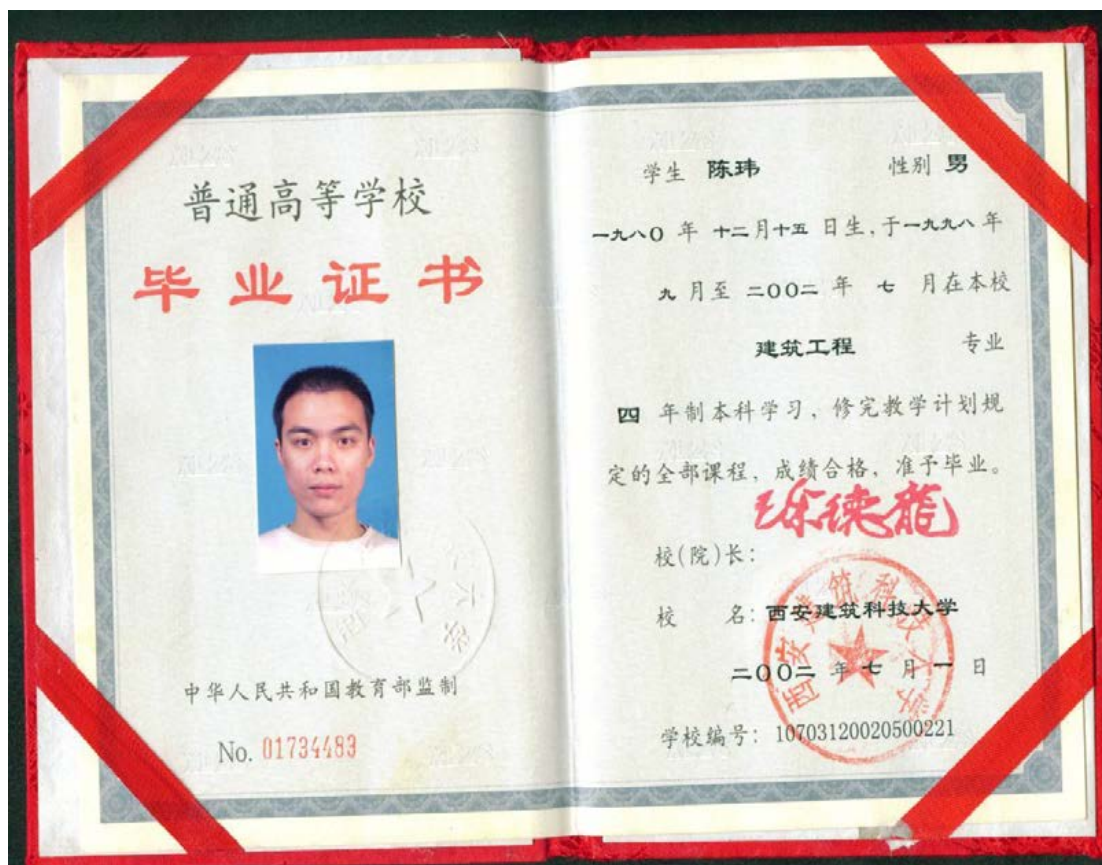 普通高等学校
毕业证书
中华人民共和国教育部监制
No. 01734483
学生 陈玮 性别 男
一九八〇 年 十二月十五 日生,于一九九八年
九 月至 二〇〇二 年 七 月在本校
建筑工程 专业
四 年制本科学习，修完教学计划规
定的全部课程，成绩合格，准予毕业。
徐德龍
校(院)长：
校 名：西安建筑科技大学
二〇〇二 年 七 月 一 日
学校编号：10703120020500221
西安建筑科技大学